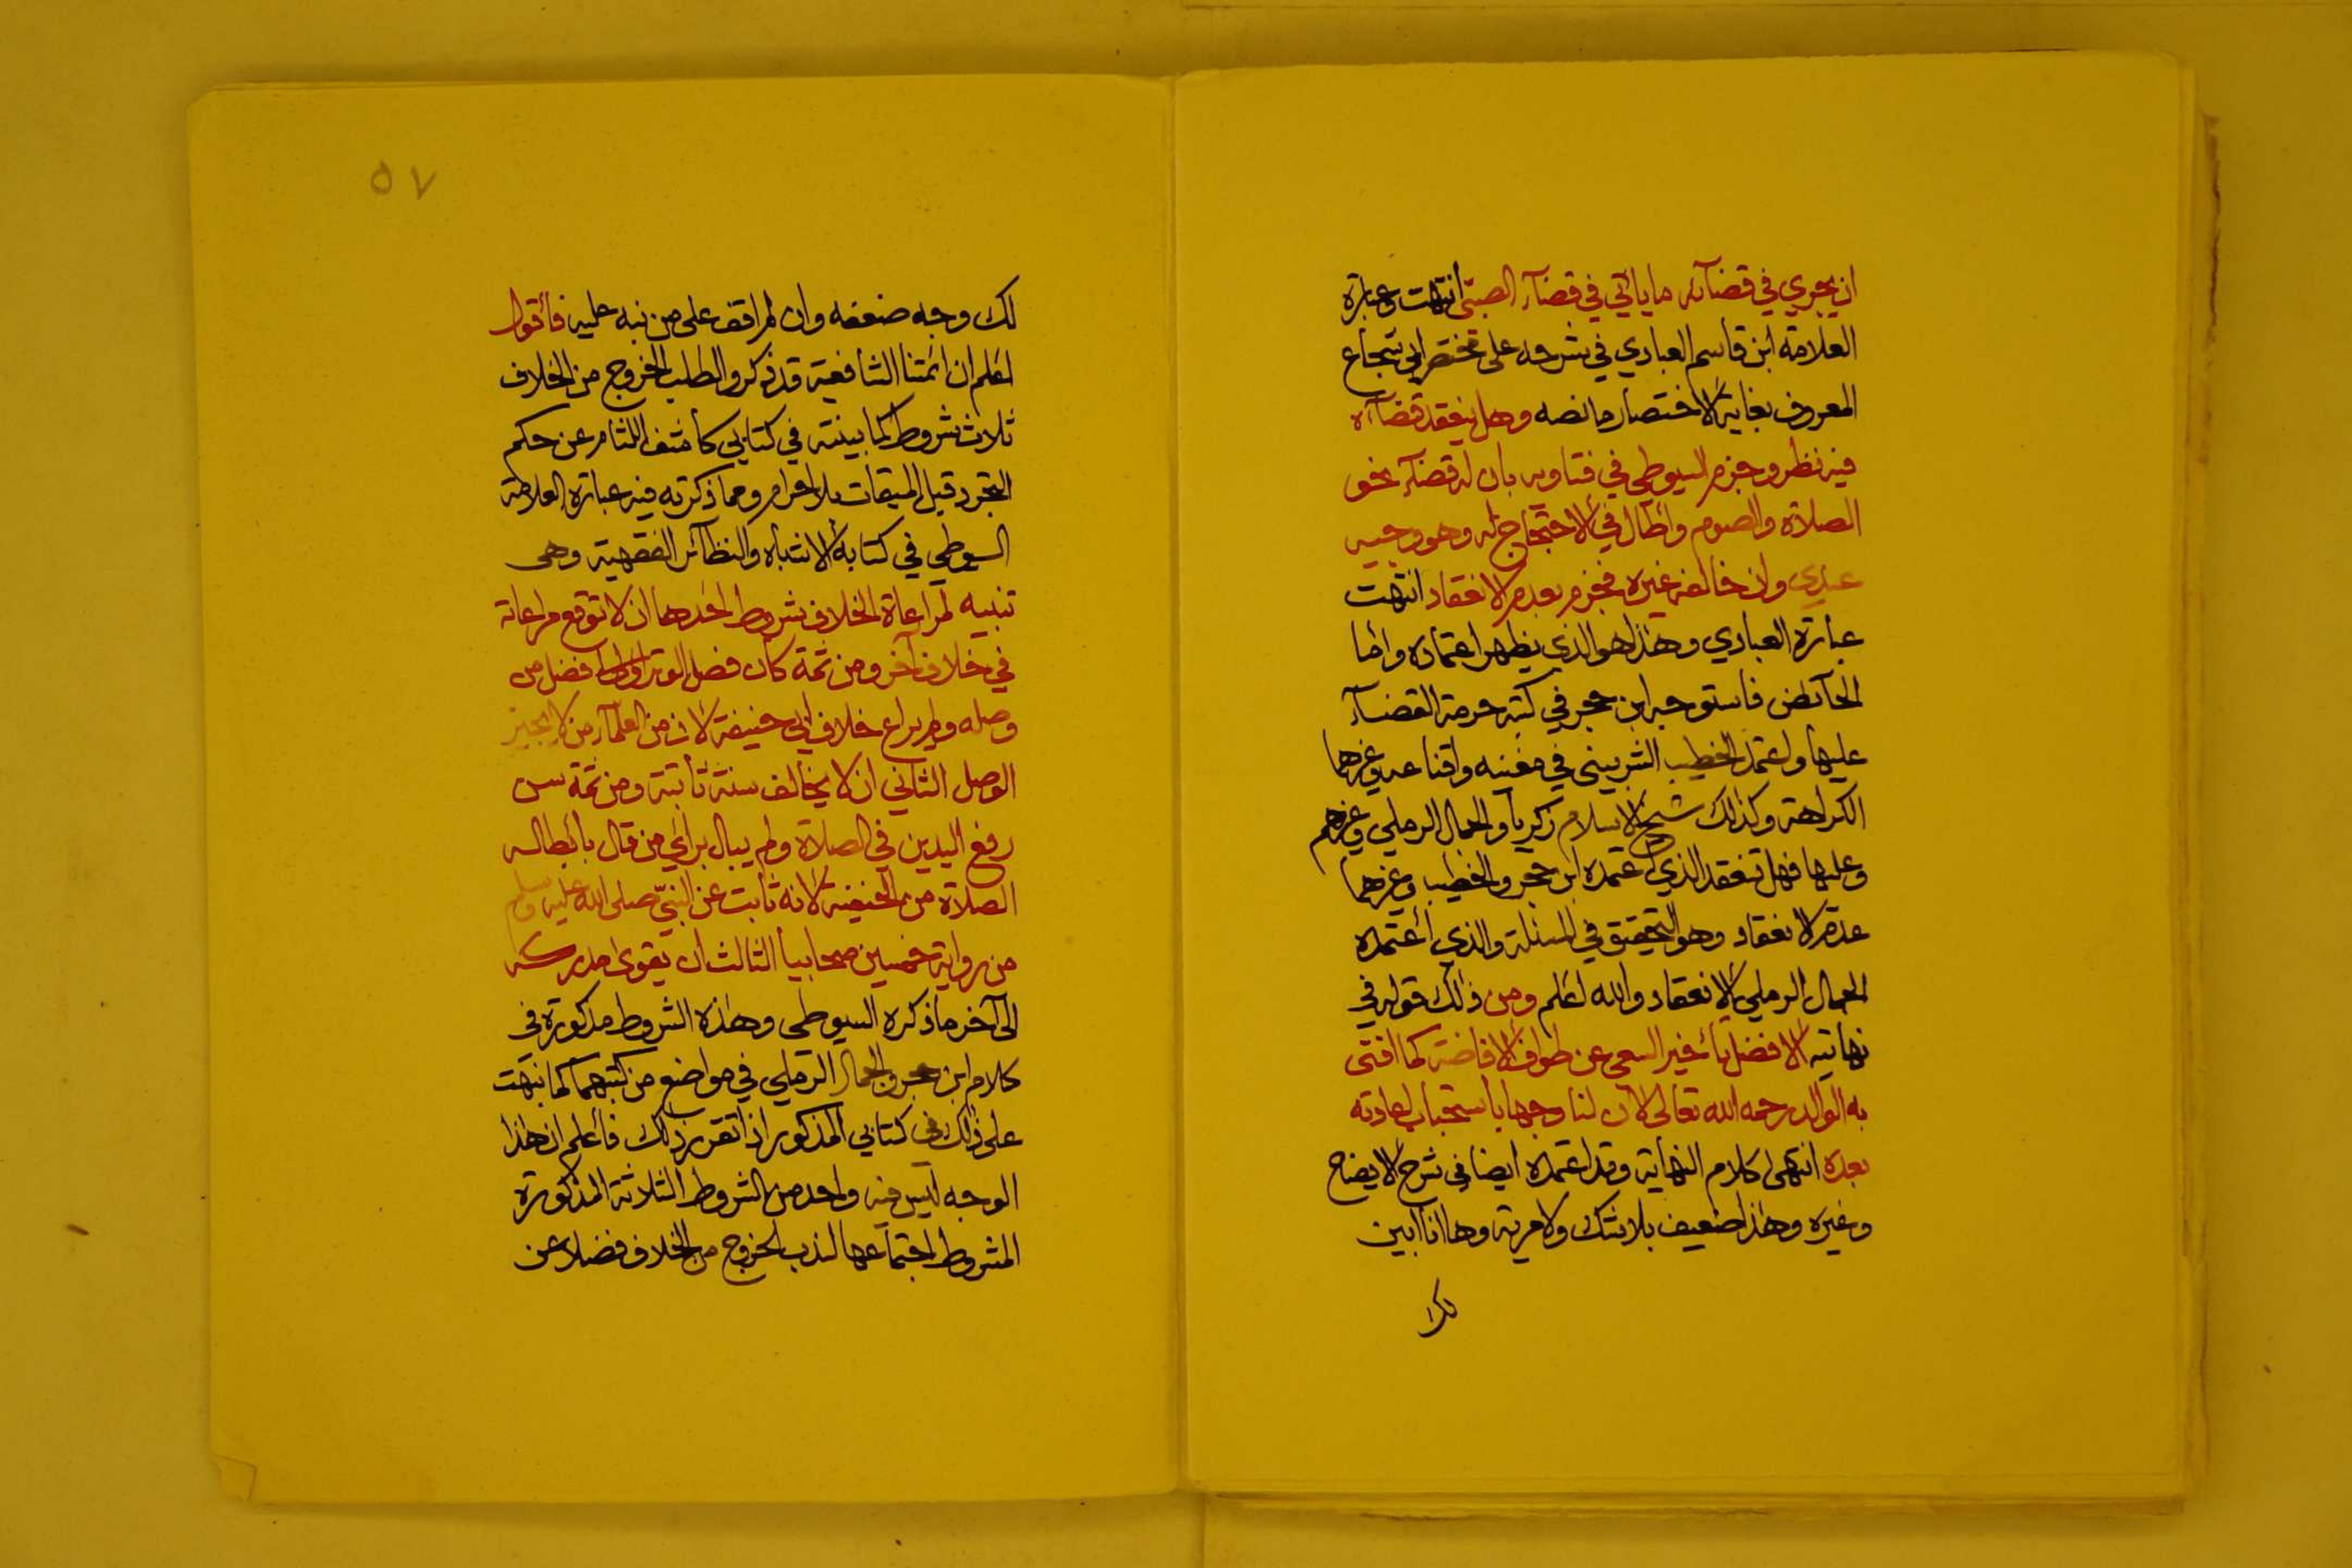 ان يجري في قضآئه ما ياتي في قضآء الصبي انتهت وعبارة
العلامة ابن قاسم العبادي في شرحه على مختصر ابي شجاع
المعروف بغاية الاختصار ما نصه وهل ينعقد قضآؤه
فيه نظر وجزم السيوطي في فتاويه بان له قضآء نحو
الصلاة والصوم واطال في الاحتجاج له وهو وجيه
عندي وان خالفه غيره فجزم بعدم الانعقاد انتهت
عبارة العبادي وهذا هو الذي يظهر اعتماده واما
الحآئض فاستوجه ابن حجر في كتبه حرمة القضآء
عليها واعتمد الخطيب الشربيني في مغنيه واقناعه وغيرهما
الكراهة وكذلك شيخ الاسلام زكريا والجمال الرملي وغيرهم
وعليها فهل تنعقد الذي اعتمده ابن حجر والخطيب وغيرهما
عدم الانعقاد وهو التحقيق في المسئلة والذي اعتمده
الجمال الرملي الانعقاد والله اعلم ومن ذلك قوله في
نهايته الافضل تأخير السعي عن طواف الافاضة كما افتى
به الوالد رحمه الله تعالى لان لنا وجها باستحباب اعادته
بعده انتهى كلام النهاية وقد اعتمده ايضا في شرح الايضاح
وغيره وهذا ضعيف بلا شك ولا مرية وها انا ابين
لك
٥٧
لك وجه ضعفه وان لم اقف على من نبه عليه فأقول
اعلم ان ائمتنا الشافعية قد ذكروا لطلب الخروج من الخلاف
ثلاث شروط كما بينته في كتابي كاشف اللثام عن حكم
التجرد قبل الميقات بلا احرام ومما ذكرته فيه عبارة العلامة
السيوطي في كتابه الاشباه والنظائر الفقهية وهي
تنبيه لمراعاة الخلاف شروط احدها ان لا توقع مراعاته
في خلاف آخر ومن ثمة كان فصل الوتر افضل من
وصله ولم يراع خلاف ابي حنيفة لان من العلمآء من لا يجيز
الوصل الثاني ان لا يخالف سنة ثابتة ومن ثمة سن
رفع اليدين في الصلاة ولم يبال براي من قال بابطاله
الصلاة من الحنفية لانه ثابت عن النبي صلى الله عليه وسلم
من رواية خمسين صحابيا الثالث ان يقوى مدركه
الى آخر ما ذكره السيوطي وهذه الشروط مذكورة في
كلام ابن حجر والجمال الرملي في مواضع من كتبهما كما نبهت
على ذلك في كتابي المذكور اذا تقرر ذلك فأعلم ان هذا
الوجه ليس فيه واحد من الشروط الثلاثة المذكورة
المشروط اجتماعها لندب الخروج من الخلاف فضلا عن